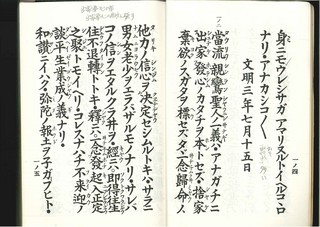 身ニモウレシサガアマリヌルトイヘルコヽロ
ナリ。アナカシコ〱。
文明三年七月十五日
一ノ四
一ノ二
当流、親鸞聖人ノ一義ハ、アナガチニ
出家発心ノカタチヲ本トセズ、捨家
棄欲ノスガタヲ標セズ、タヾ一念帰命ノ
他力ノ信心ヲ決定セシムルトキハ、サラニ
男女老少ヲエラバザルモノナリ。サレバ
コノ信ヲエタルクラ井ヲ、経ニハ即得往生
住不退転トトキ、釈ニハ一念発起入正定
之聚トモイヘリ。コレスナハチ不来迎ノ
談、平生業成ノ義ナリ。
和讃ニイハク、弥陀ノ報土ヲネガフヒト
一ノ五